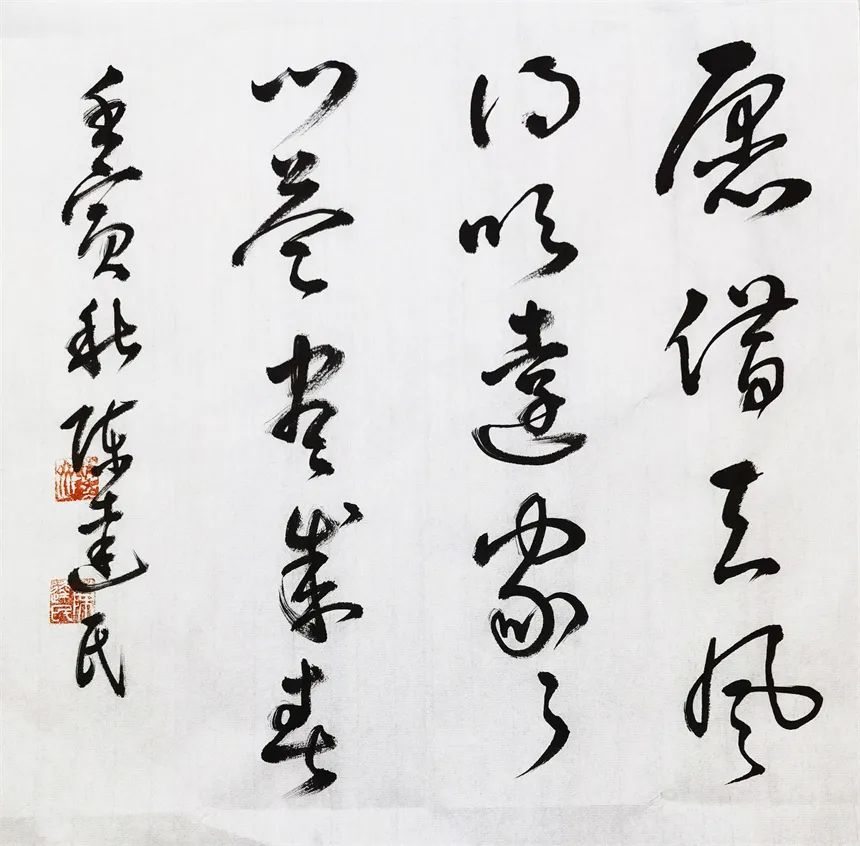 愿借天风
得吹遠家々
门巷尽成春
壬寅� 陈建民